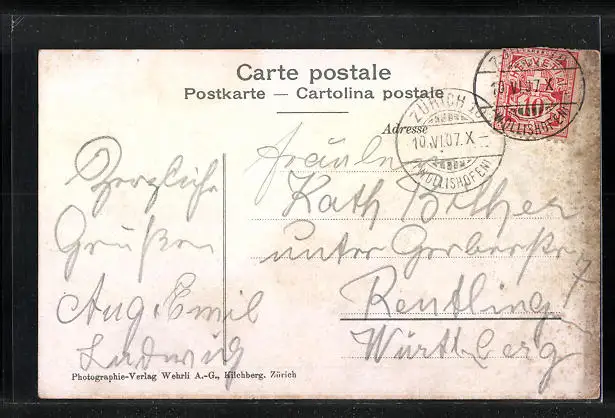 Carte postale
Postkarte — Cartolina postale
Adresse
ZÜRICH
10.VI.07.X
(WOLLISHOFEN)
HELVETIA
10
10.VI.07.X
(WOLLISHOFEN)
Herzliche
Grüßen
Aug. Emil
Ludwig
Fräulein
Kath
unter Gerberstr
7
Reutling
Württberg
Photographie-Verlag Wehrli A.-G., Kilchberg. Zürich